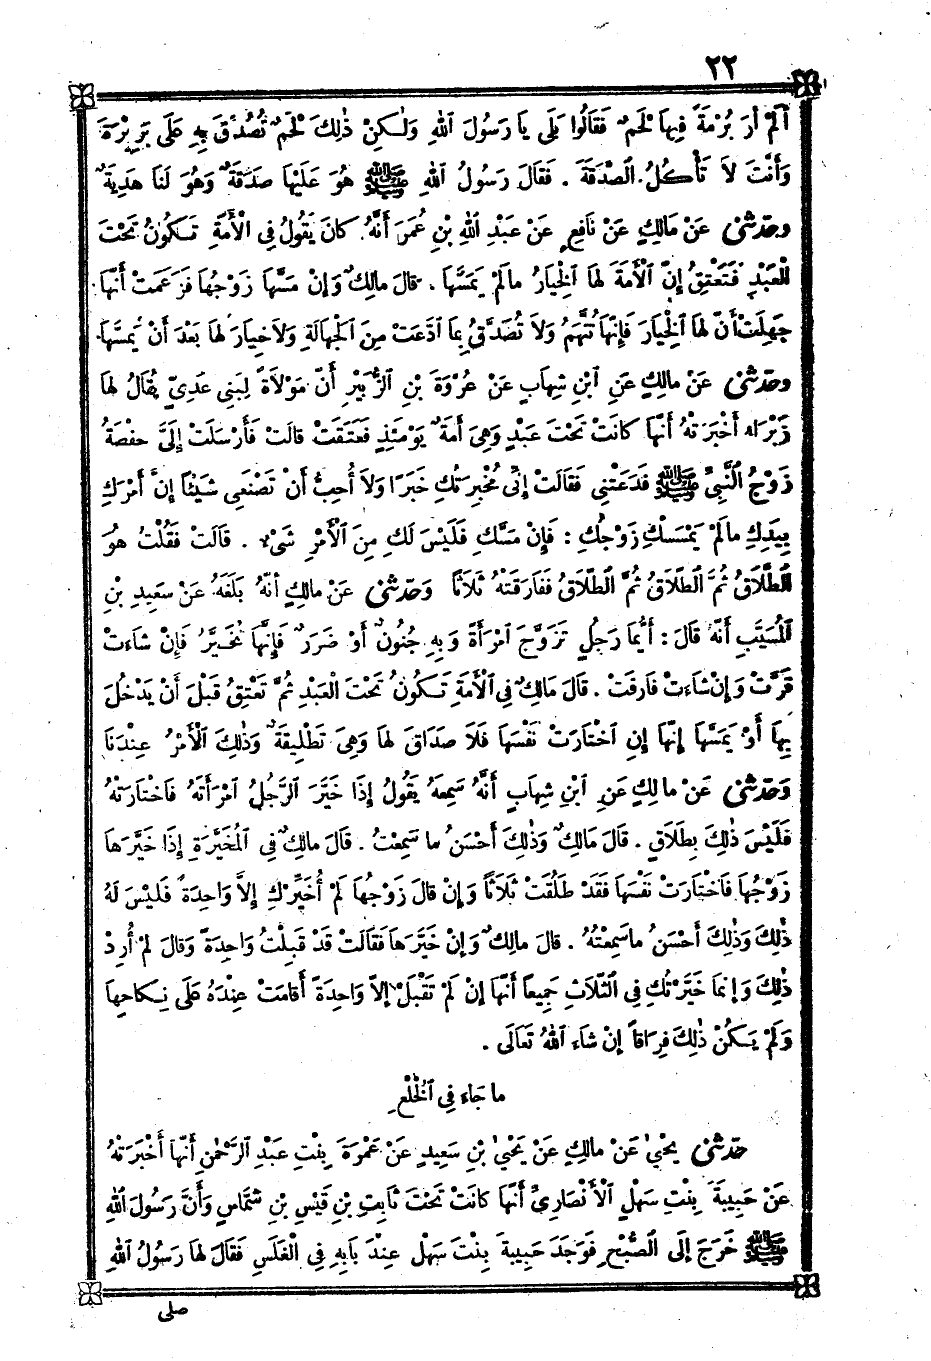 ٢٢
أَلَمْ أَرَ بُرْمَةً فِيهَا لَحْمٌ فَقَالُوا بَلَى يَا رَسُولَ اللهِ وَلَٰكِنْ ذَٰلِكَ لَحْمٌ تُصُدِّقَ بِهِ عَلَى بَرِيرَةَ
وَأَنْتَ لَا تَأْكُلُ الصَّدَقَةَ . فَقَالَ رَسُولُ اللهِ ﷺ هُوَ عَلَيْهَا صَدَقَةٌ وَهُوَ لَنَا هَدِيَةٌ
وحدثنى عَنْ مَالِكٍ عَنْ نَافِعٍ عَنْ عَبْدِ اللهِ بْنِ عُمَرَ أَنَّهُ كَانَ يَقُولُ فِي الْأَمَةِ تَكُونُ تَحْتَ
الْعَبْدِ فَتَعْتِقُ إِنَّ الْأَمَةَ لَهَا الْخِيَارُ مالَمْ يَمَسَّهَا . قَالَ مالِكٌ وَإِنْ مَسَّهَا زَوْجُهَا فَزَعَمَتْ أَنَّهَا
جَهِلَتْ أَنَّ لَهَا الْخِيَارَ فَإِنَّهَا تُتَّهَمُ وَلَا تُصَدَّقُ بِمَا ادَّعَتْ مِنَ الْجَهَالَةِ وَلَا خِيَارَ لَهَا بَعْدَ أَنْ يَمَسَّهَا
وحدثنى عَنْ مَالِكٍ عَنِ ابْنِ شِهَابٍ عَنْ عُرْوَةَ بْنِ الزُّبَيْرِ أَنَّ مَوْلَاةً لِبَنِي عَدِيٍّ يُقَالُ لَهَا
زَبْرَاء أَخْبَرَتْهُ أَنَّهَا كَانَتْ تَحْتَ عَبْدٍ وَهِيَ أَمَةٌ يَوْمَئِذٍ فَعَتَقَتْ قَالَتْ فَأَرْسَلَتْ إِلَيَّ حَفْصَةُ
زَوْجُ النَّبِيِّ ﷺ فَدَعَتْنِي فَقَالَتْ إِنِّي مُخْبِرَتُكِ خَبَرًا وَلَا أُحِبُّ أَنْ تَصْنَعِي شَيْئًا إِنَّ أَمْرَكِ
بِيَدِكِ مالَمْ يَمْسَسْكِ زَوْجُكِ : فَإِنْ مَسَّكِ فَلَيْسَ لَكِ مِنَ الْأَمْرِ شَيْءٌ . قَالَتْ فَقُلْتُ هُوَ
الطَّلَاقُ ثُمَّ الطَّلَاقُ ثُمَّ الطَّلَاقُ فَفَارَقَتْهُ ثَلَاثًا وَحدثنى عَنْ مَالِكٍ أَنَّهُ بَلَغَهُ عَنْ سَعِيدِ بْنِ
الْمُسَيَّبِ أَنَّهُ قَالَ : أَيُّمَا رَجُلٍ تَزَوَّجَ امْرَأَةً وَبِهِ جُنُونٌ أَوْ ضَرَرٌ فَإِنَّهَا تُخَيَّرُ فَإِنْ شَاءَتْ
قَرَّتْ وَإِنْ شَاءَتْ فَارَقَتْ . قَالَ مَالِكٌ فِي الْأَمَةِ تَكُونُ تَحْتَ الْعَبْدِ ثُمَّ تَعْتِقُ قَبْلَ أَنْ يَدْخُلَ
بِهَا أَوْ يَمَسَّهَا إِنَّهَا إِنِ اخْتَارَتْ نَفْسَهَا فَلَا صَدَاقَ لَهَا وَهِيَ تَطْلِيقَةٌ وَذَٰلِكَ الْأَمْرُ عِنْدَنَا
وَحدثنى عَنْ مَالِكٍ عَنِ ابْنِ شِهَابٍ أَنَّهُ سَمِعَهُ يَقُولُ إِذَا خَيَّرَ الرَّجُلُ امْرَأَتَهُ فَاخْتَارَتْهُ
فَلَيْسَ ذَٰلِكَ بِطَلَاقٍ . قَالَ مَالِكٌ وَذَٰلِكَ أَحْسَنُ مَا سَمِعْتُ . قَالَ مَالِكٌ فِي الْمُخَيَّرَةِ إِذَا خَيَّرَهَا
زَوْجُهَا فَاخْتَارَتْ نَفْسَهَا فَقَدْ طَلُقَتْ ثَلَاثًا وَإِنْ قَالَ زَوْجُهَا لَمْ أُخَيِّرْكِ إِلَّا وَاحِدَةً فَلَيْسَ لَهُ
ذَٰلِكَ وَذَٰلِكَ أَحْسَنُ مَا سَمِعْتُهُ . قَالَ مَالِكٌ وَإِنْ خَيَّرَهَا فَقَالَتْ قَدْ قَبِلْتُ وَاحِدَةً وَقَالَ لَمْ أُرِدْ
ذَٰلِكَ وَإِنَّمَا خَيَّرْتُكِ فِي الثَّلَاثِ جَمِيعًا أَنَّهَا إِنْ لَمْ تَقْبَلْ إِلَّا وَاحِدَةً أَقَامَتْ عِنْدَهُ عَلَى نِكَاحِهَا
وَلَمْ يَكُنْ ذَٰلِكَ فِرَاقًا إِنْ شَاءَ اللهُ تَعَالَى .
ما جَاءَ فِي الْخُلْعِ
حدثنى يَحْيَىٰ عَنْ مَالِكٍ عَنْ يَحْيَىٰ بْنِ سَعِيدٍ عَنْ عَمْرَةَ بِنْتِ عَبْدِ الرَّحْمَٰنِ أَنَّهَا أَخْبَرَتْهُ
عَنْ حَبِيبَةَ بِنْتِ سَهْلٍ الْأَنْصَارِيِّ أَنَّهَا كَانَتْ تَحْتَ ثَابِتِ بْنِ قَيْسِ بْنِ شَمَّاسٍ وَأَنَّ رَسُولَ اللهِ
ﷺ خَرَجَ إِلَى الصُّبْحِ فَوَجَدَ حَبِيبَةَ بِنْتَ سَهْلٍ عِنْدَ بَابِهِ فِي الْغَلَسِ فَقَالَ لَهَا رَسُولُ اللهِ
صلى